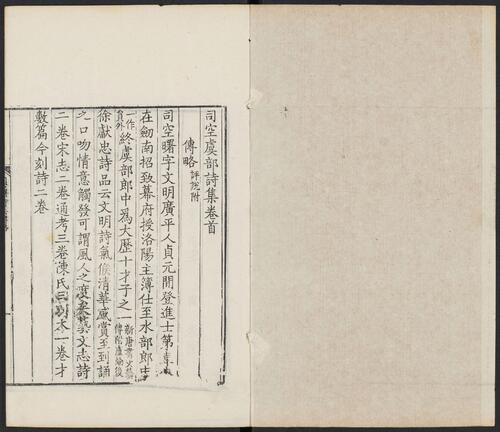 司空虞部詩集卷首
傳略 評從附
司空曙字文明廣平人貞元間登進士第韋
在劒南招致幕府授洛陽主簿仕至水部郎中
一作員外終虞部郎中爲大歷十才子之一新唐書文藝傳附盧綸後
徐獻忠詩品云文明詩氣候清華感賞至到誦
之口吻情意觸發可謂風人之度矣藝文志詩
二卷宋志二卷通考三卷陳氏云别本一卷才
數篇今刻詩二卷